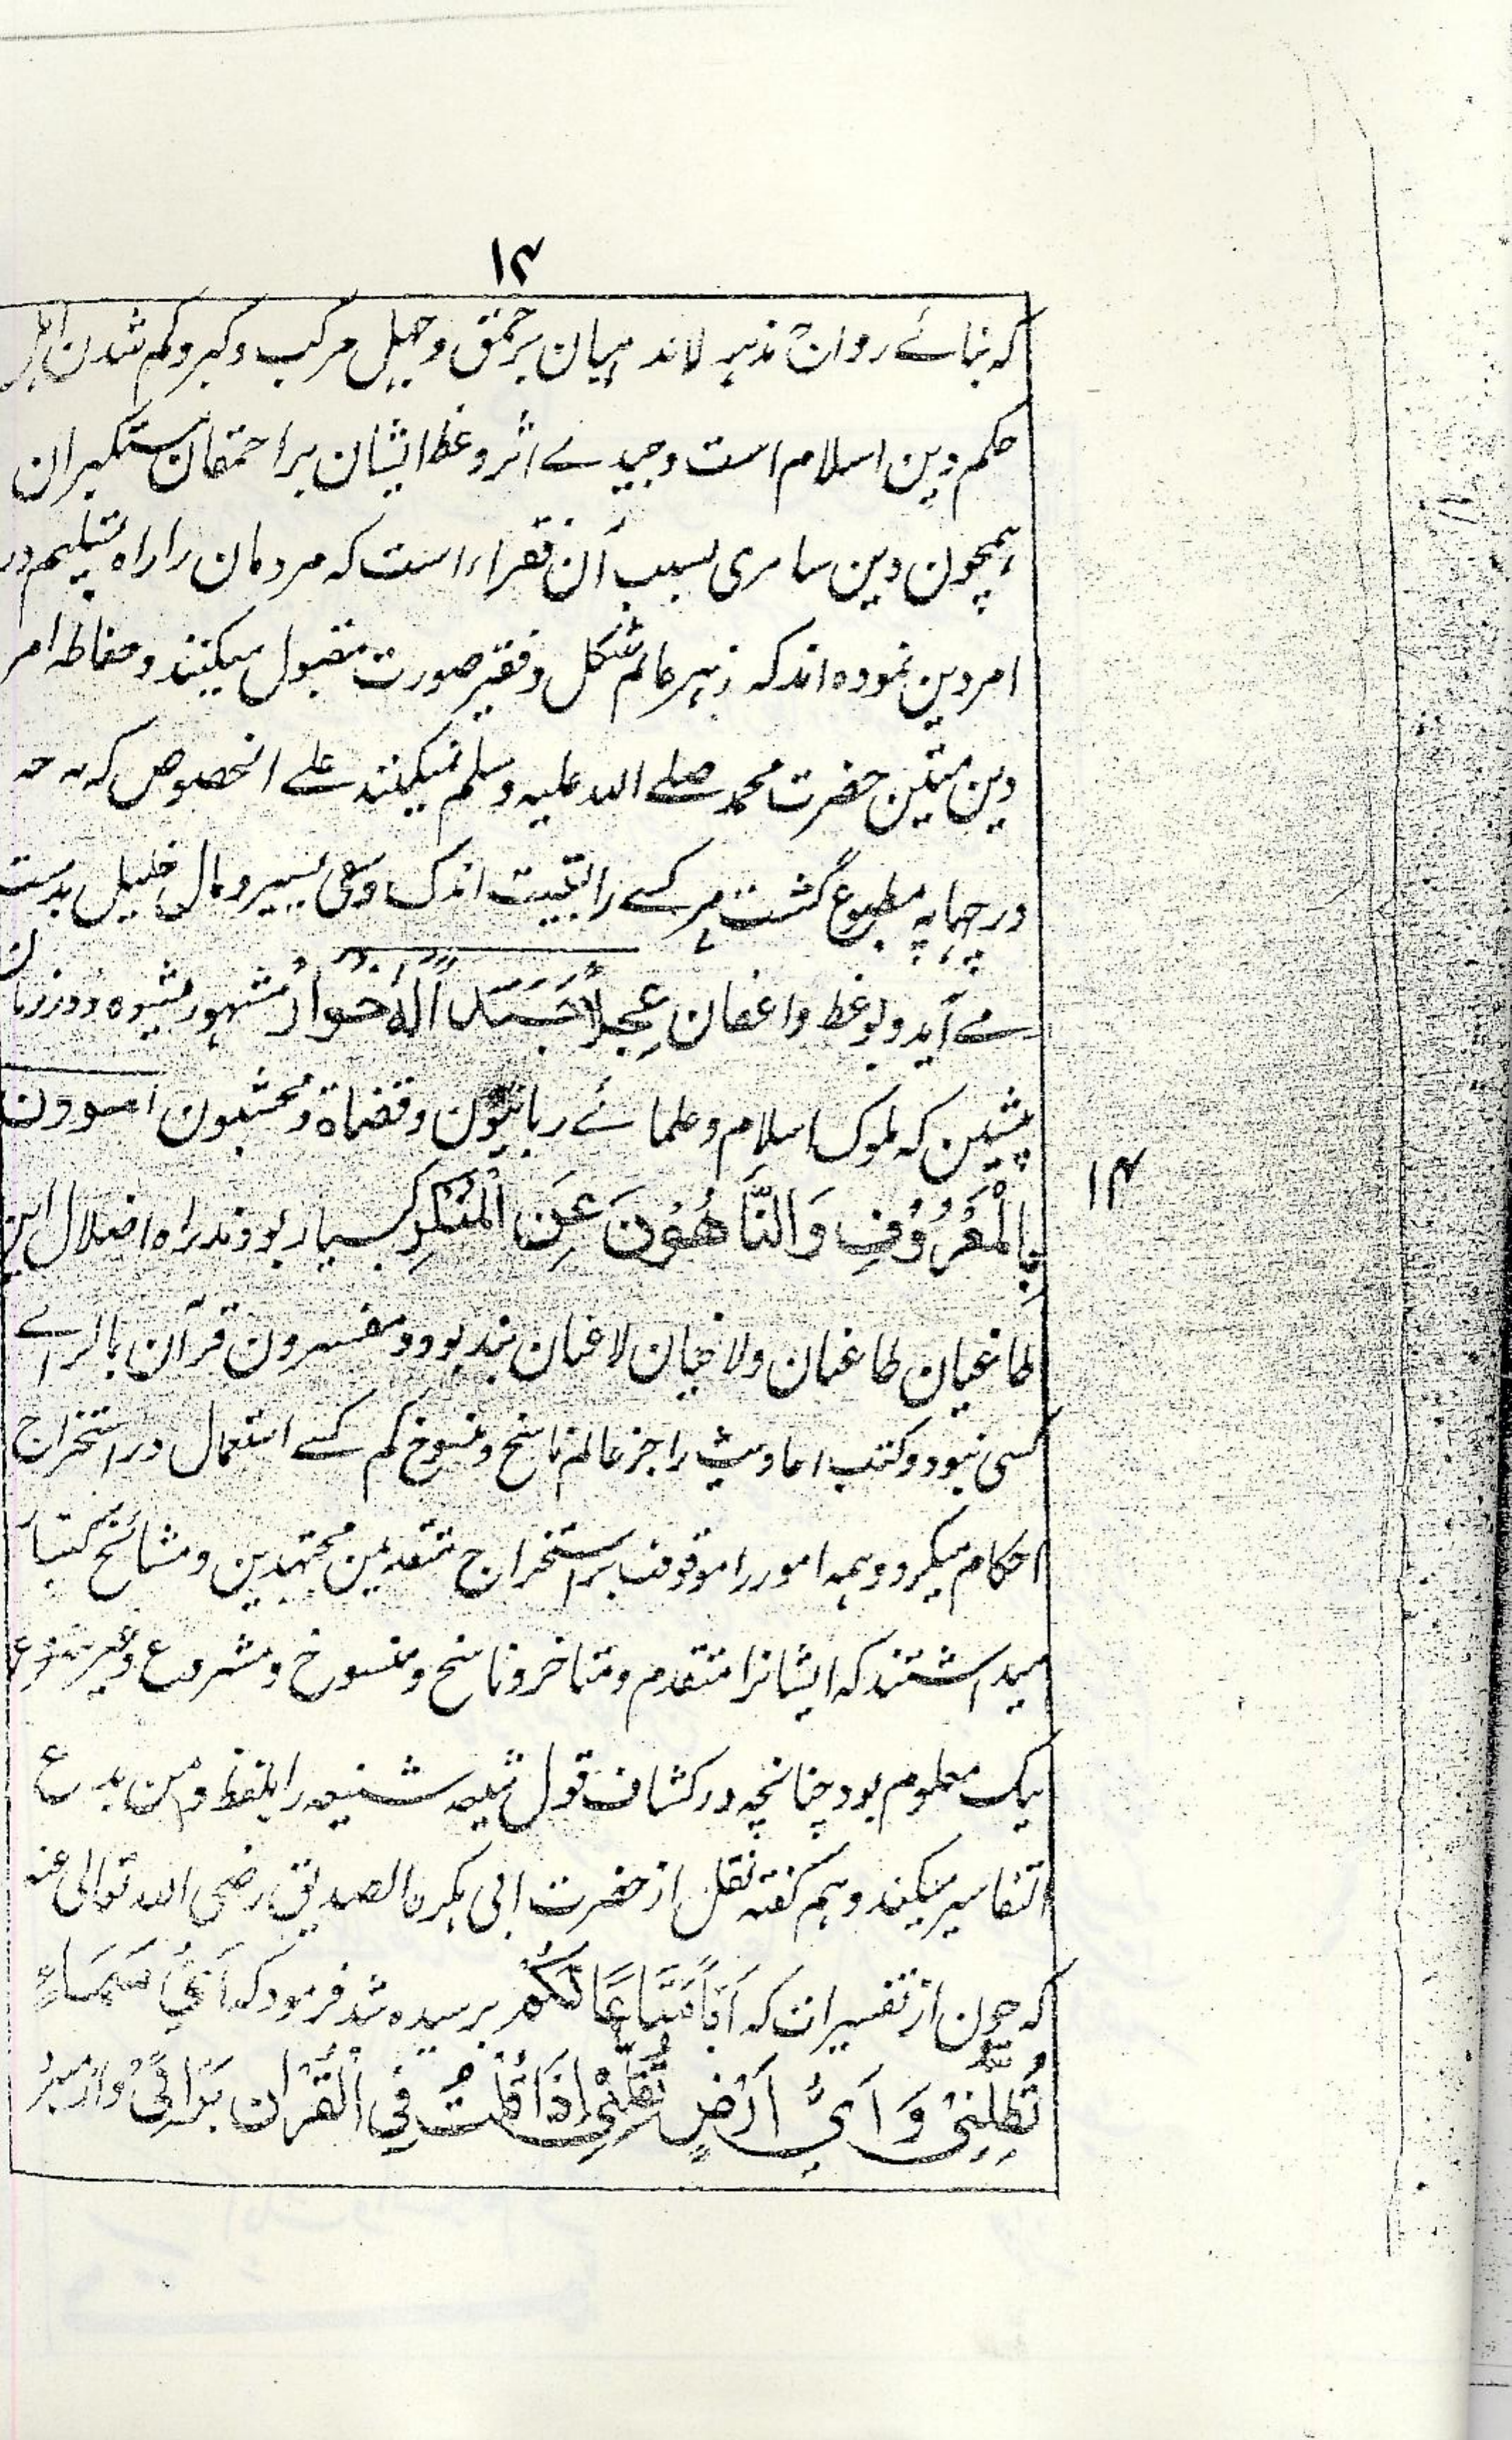 ۱۴
که بنائے رواج مذہب لامذہبیان بر حمق وجہل مرکب وکبر وکم شدن اہل
حکم دین اسلام است وجید بے اثر وعظ ایشان بر احمقان مستکبران
ہمچون دین سامری بسبب آن فقراء است که مردمان را راہ تسلیم در
امر دین نموده اند که زہر عالم شکل وفقیر صورت مقبول میکنند وحفاظہ امر
دین متین حضرت محمد صلے اللہ علیہ وسلم نمیکنند علے الخصوص که
در چہاپہ مطبوع گشت ہر کسے را بقیمت اندک وسعی یسیر ومال قلیل بدست
مے آید وبوعظ واعظان عِجْلًا جَسَدًا لَّهُ خُوَارٌ مشہور میشود ودر زمان
پیشین که ملوک اسلام وعلمائے ربانیون وقضاة ومحتسبون آمرون
بِالْمَعْرُوفِ وَالنَّاهُونَ عَنِ الْمُنْكَرِ بسیار بودند راه اضلال این
۱۴
طاغیان طاغمان ولاغیان لاغمان بند بود ومفسرون قرآن بالرائے
کسی نبود وکتب احادیث را جز عالم ناسخ ومنسوخ کم کسے استعمال در استخراج
احکام میکرد وہمہ امور را موقوف بر استخراج متقدمین مجتہدین ومشائخ کبار
میداشتند که ایشانرا متقدم ومتاخر وناسخ ومنسوخ ومشروع وغیر مشروع
نیک معلوم بود چنانچہ در کشاف قول شیعہ شنیعہ را بلفظ ومن بدع
التفاسیر میکند وہم گفتہ نقل از حضرت ابی بکر ن الصدیق رضی اللہ تعالی عنہ
که چون از تفسیرات که اَبًّا مَّتَاعًا لَّكُمْ پرسیده شد فرمود که اَيُّ سَمَاءٍ
تُظِلُّنِيْ وَ اَيُّ اَرْضٍ تُقِلُّنِيْ اِذَا قُلْتُ فِي الْقُرْاٰنِ بَرَائِيْ واز